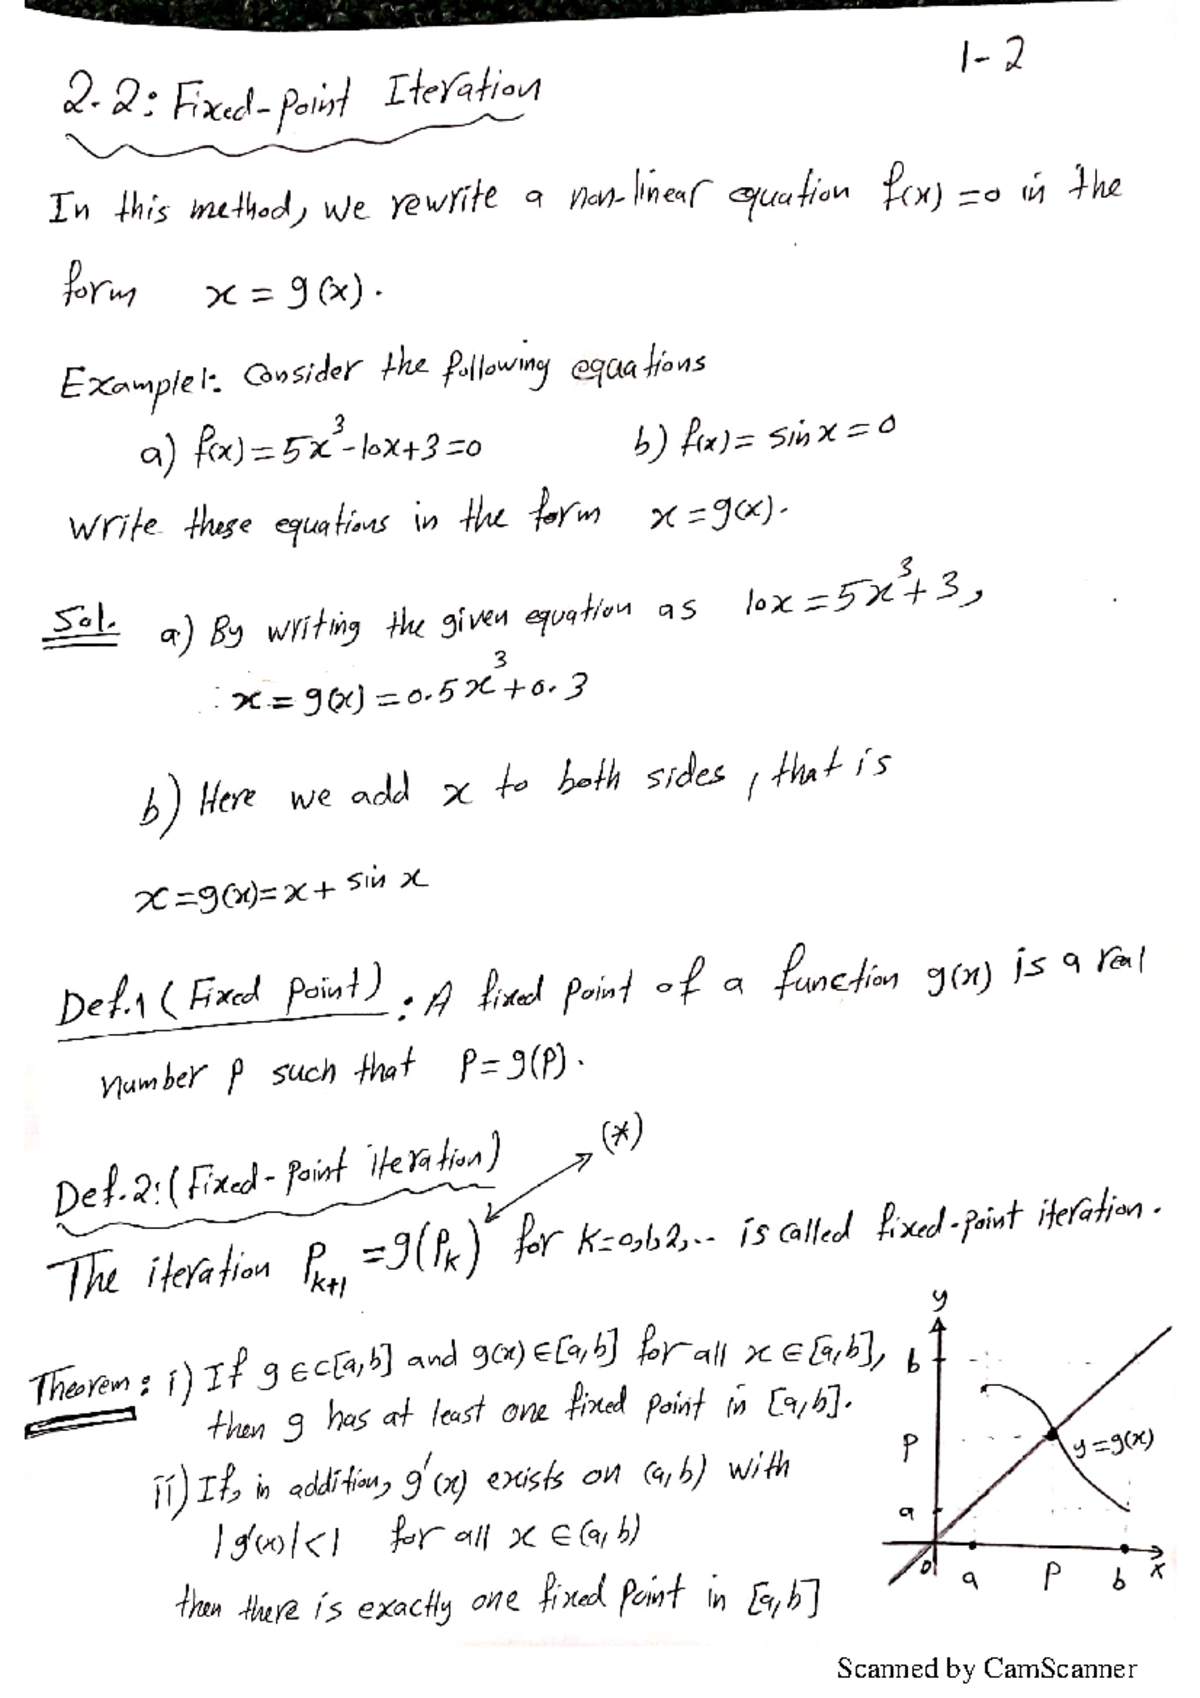 1-2
2.2: Fixed-point Iteration
In this method, we rewrite a non-linear equation f(x) = 0 in the
form x = g(x).
Example1: Consider the following equations
a) f(x) = 5x³-10x+3=0 b) f(x) = sin x = 0
write these equations in the form x = g(x).
Sol. a) By writing the given equation as 10x = 5x³+3,
∴ x = g(x) = 0.5x³+0.3
b) Here we add x to both sides, that is
x = g(x) = x + sin x
Def.1 (Fixed point): A fixed point of a function g(x) is a real
number p such that p = g(p).
(*)
Def.2: (Fixed-point iteration)
The iteration P_{k+1} = g(P_k) for k=0,1,2,... is called fixed-point iteration.
Theorem: i) If g ∈ C[a,b] and g(x) ∈ [a,b] for all x ∈ [a,b],
then g has at least one fixed point in [a,b].
ii) If, in addition, g'(x) exists on (a,b) with
|g'(x)|<1 for all x ∈ (a,b)
then there is exactly one fixed point in [a,b]
y
b
p y=g(x)
a
0 a p b x
Scanned by CamScanner